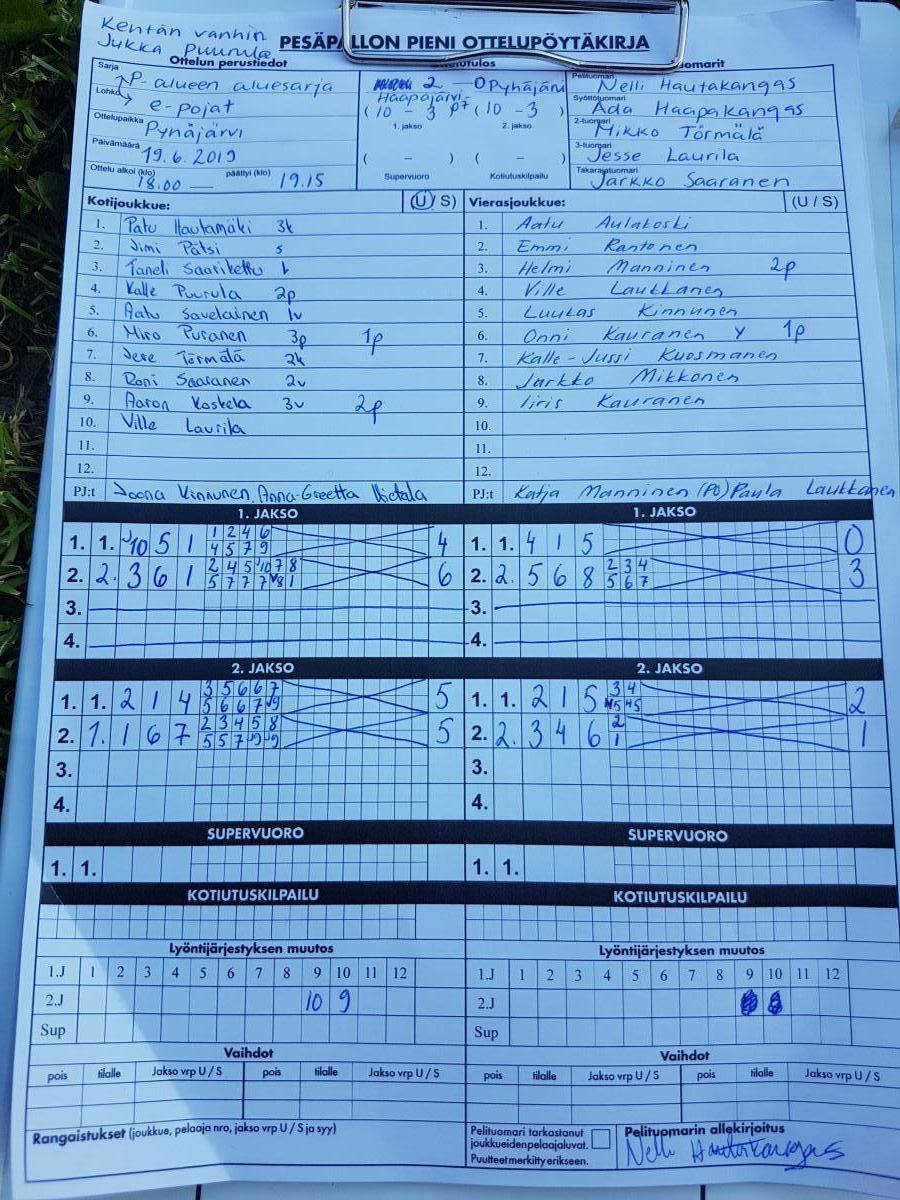 Kentän vanhin
Jukka Puurula
PESÄPALLON PIENI OTTELUPÖYTÄKIRJA
Ottelun perustiedot
Sarja P-alueen aluesarja
Lohko e-pojat
Ottelupaikka Pyhäjärvi
Päivämäärä 19.6.2019
Ottelu alkoi (klo) 18.00 — päättyi (klo) 19.15
2 - 0 Pyhäjärvi
Haapajärvi
(10 - 3) (10 - 3)
1. jakso 2. jakso
( - ) ( - )
Supervuoro Kotiutuskilpailu
Pelituomari Nelli Hautakangas
Syöttötuomari Ada Haapakangas
2-tuomari Mikko Törmälä
3-tuomari Jesse Laurila
Takarajatuomari Jarkko Saaranen
Kotijoukkue: (U / S)
1. Patu Hautamäki 3k
2. Jimi Pätsi s
3. Taneli Saariketto l
4. Kalle Puurula 2p
5. Aatu Savelainen 1v
6. Miro Puranen 3p 1p
7. Jere Törmälä 2k
8. Roni Saaranen 2v
9. Aaron Koskela 3v 2p
10. Ville Laurila
11.
12.
PJ:t Joona Kinnunen, Anna-Greetta Hietala
Vierasjoukkue: (U / S)
1. Aatu Aulakoski
2. Emmi Rantonen
3. Helmi Manninen 2p
4. Ville Laukkanen
5. Luukas Kinnunen
6. Onni Kauranen Y 1p
7. Kalle-Jussi Kuosmanen
8. Jarkko Mikkonen
9. Iiris Kauranen
10.
11.
12.
PJ:t Katja Manninen (PJ) Paula Laukkanen
1. JAKSO
1. 1. 10 5 1 1 2 4 6 4
4 5 7 9
2. 2. 3 6 1 2 4 5 10 7 8 6
5 7 7 7 8 1
3.
4.
1. JAKSO
1. 1. 4 1 5 0
2. 2. 5 6 8 2 3 4 3
5 6 7
3.
4.
2. JAKSO
1. 1. 2 1 4 3 5 6 6 7 5
5 6 6 7 9
2. 1. 1 6 7 2 3 4 5 8 5
5 5 7 9 9
3.
4.
2. JAKSO
1. 1. 2 1 5 3 4 2
2. 2. 3 4 6 2 1
1
3.
4.
SUPERVUORO
1. 1.
SUPERVUORO
1. 1.
KOTIUTUSKILPAILU
KOTIUTUSKILPAILU
Lyöntijärjestyksen muutos
1.J 1 2 3 4 5 6 7 8 9 10 11 12
2.J 10 9
Sup
Lyöntijärjestyksen muutos
1.J 1 2 3 4 5 6 7 8 9 10 11 12
2.J
Sup
Vaihdot
pois tilalle Jakso vrp U / S pois tilalle Jakso vrp U / S
Vaihdot
pois tilalle Jakso vrp U / S pois tilalle Jakso vrp U / S
Rangaistukset (joukkue, pelaaja nro, jakso vrp U / S ja syy)
Pelituomari tarkastanut
joukkueidenpelaajaluvat.
Puutteet merkitty erikseen.
Pelituomarin allekirjoitus
Nelli Hautakangas